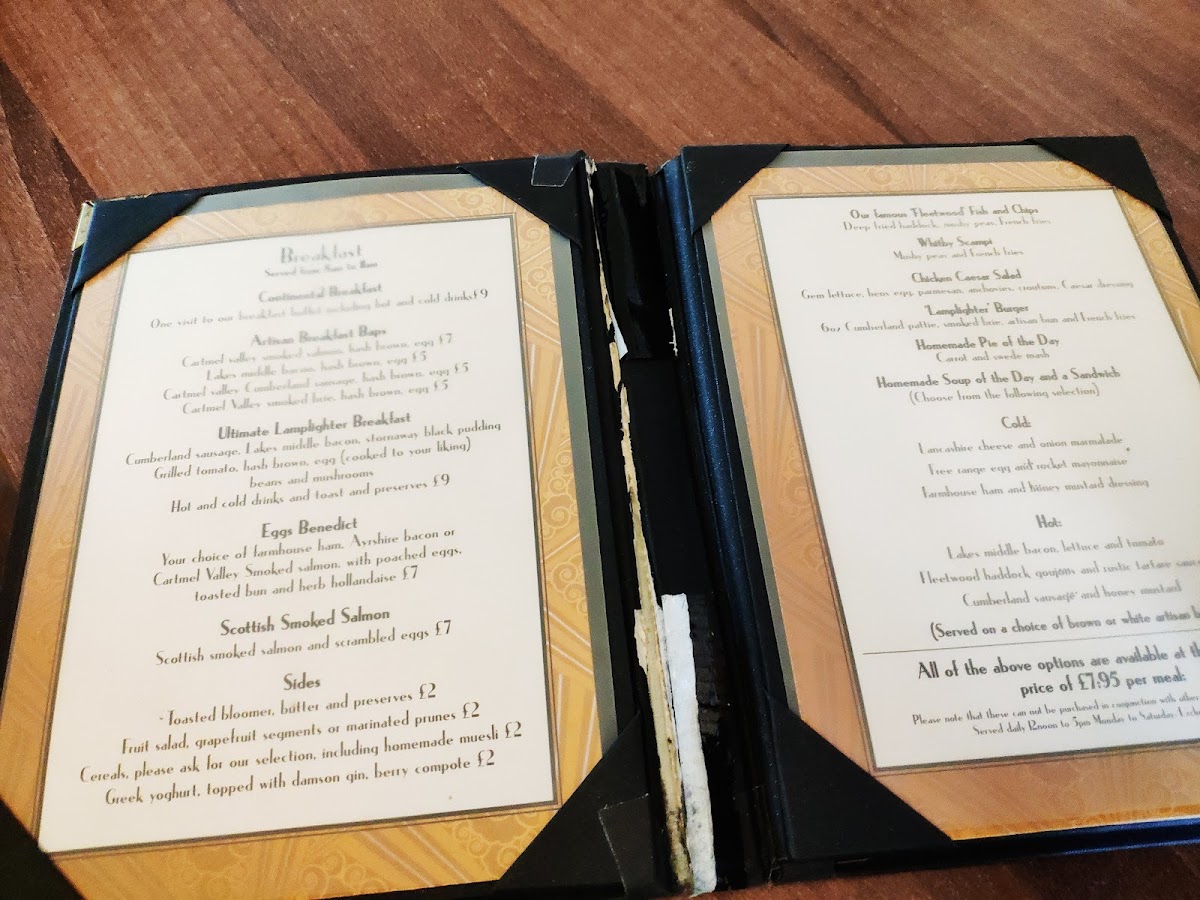 Breakfast
Served from 8am to 11am
Continental Breakfast
One visit to our breakfast buffet including hot and cold drinks£9
Artisan Breakfast Baps
Cartmel valley smoked salmon, hash brown, egg £7
Lakes middle bacon, hash brown, egg £5
Cartmel valley Cumberland sausage, hash brown, egg £5
Cartmel Valley smoked brie, hash brown, egg £5
Ultimate Lamplighter Breakfast
Cumberland sausage, Lakes middle bacon, stornaway black pudding
Grilled tomato, hash brown, egg (cooked to your liking)
beans and mushrooms
Hot and cold drinks and toast and preserves £9
Eggs Benedict
Your choice of farmhouse ham, Ayrshire bacon or
Cartmel Valley Smoked salmon, with poached eggs,
toasted bun and herb hollandaise £7
Scottish Smoked Salmon
Scottish smoked salmon and scrambled eggs £7
Sides
Toasted bloomer, butter and preserves £2
Fruit salad, grapefruit segments or marinated prunes £2
Cereals, please ask for our selection, including homemade muesli £2
Greek yoghurt, topped with damson gin, berry compote £2
Our famous 'Fleetwood' Fish and Chips
Deep fried haddock, mushy peas, French fries
Whitby Scampi
Mushy peas and French fries
Chicken Caesar Salad
Gem lettuce, hens egg, parmesan, anchovies, croutons, Caesar dressing
'Lamplighter' Burger
6oz Cumberland pattie, smoked brie, artisan bun and French fries
Homemade Pie of the Day
Carrot and swede mash
Homemade Soup of the Day and a Sandwich
(Choose from the following selection)
Cold:
Lancashire cheese and onion marmalade
Free range egg and rocket mayonnaise
Farmhouse ham and honey mustard dressing
Hot:
Lakes middle bacon, lettuce and tomato
Fleetwood haddock goujons and rustic tartare sauce
Cumberland sausage and honey mustard
(Served on a choice of brown or white artisan
All of the above options are available at
price of £7.95 per meal:
Please note that these can not be purchased in conjunction with
Served daily 12noon to 5pm Monday to Saturday